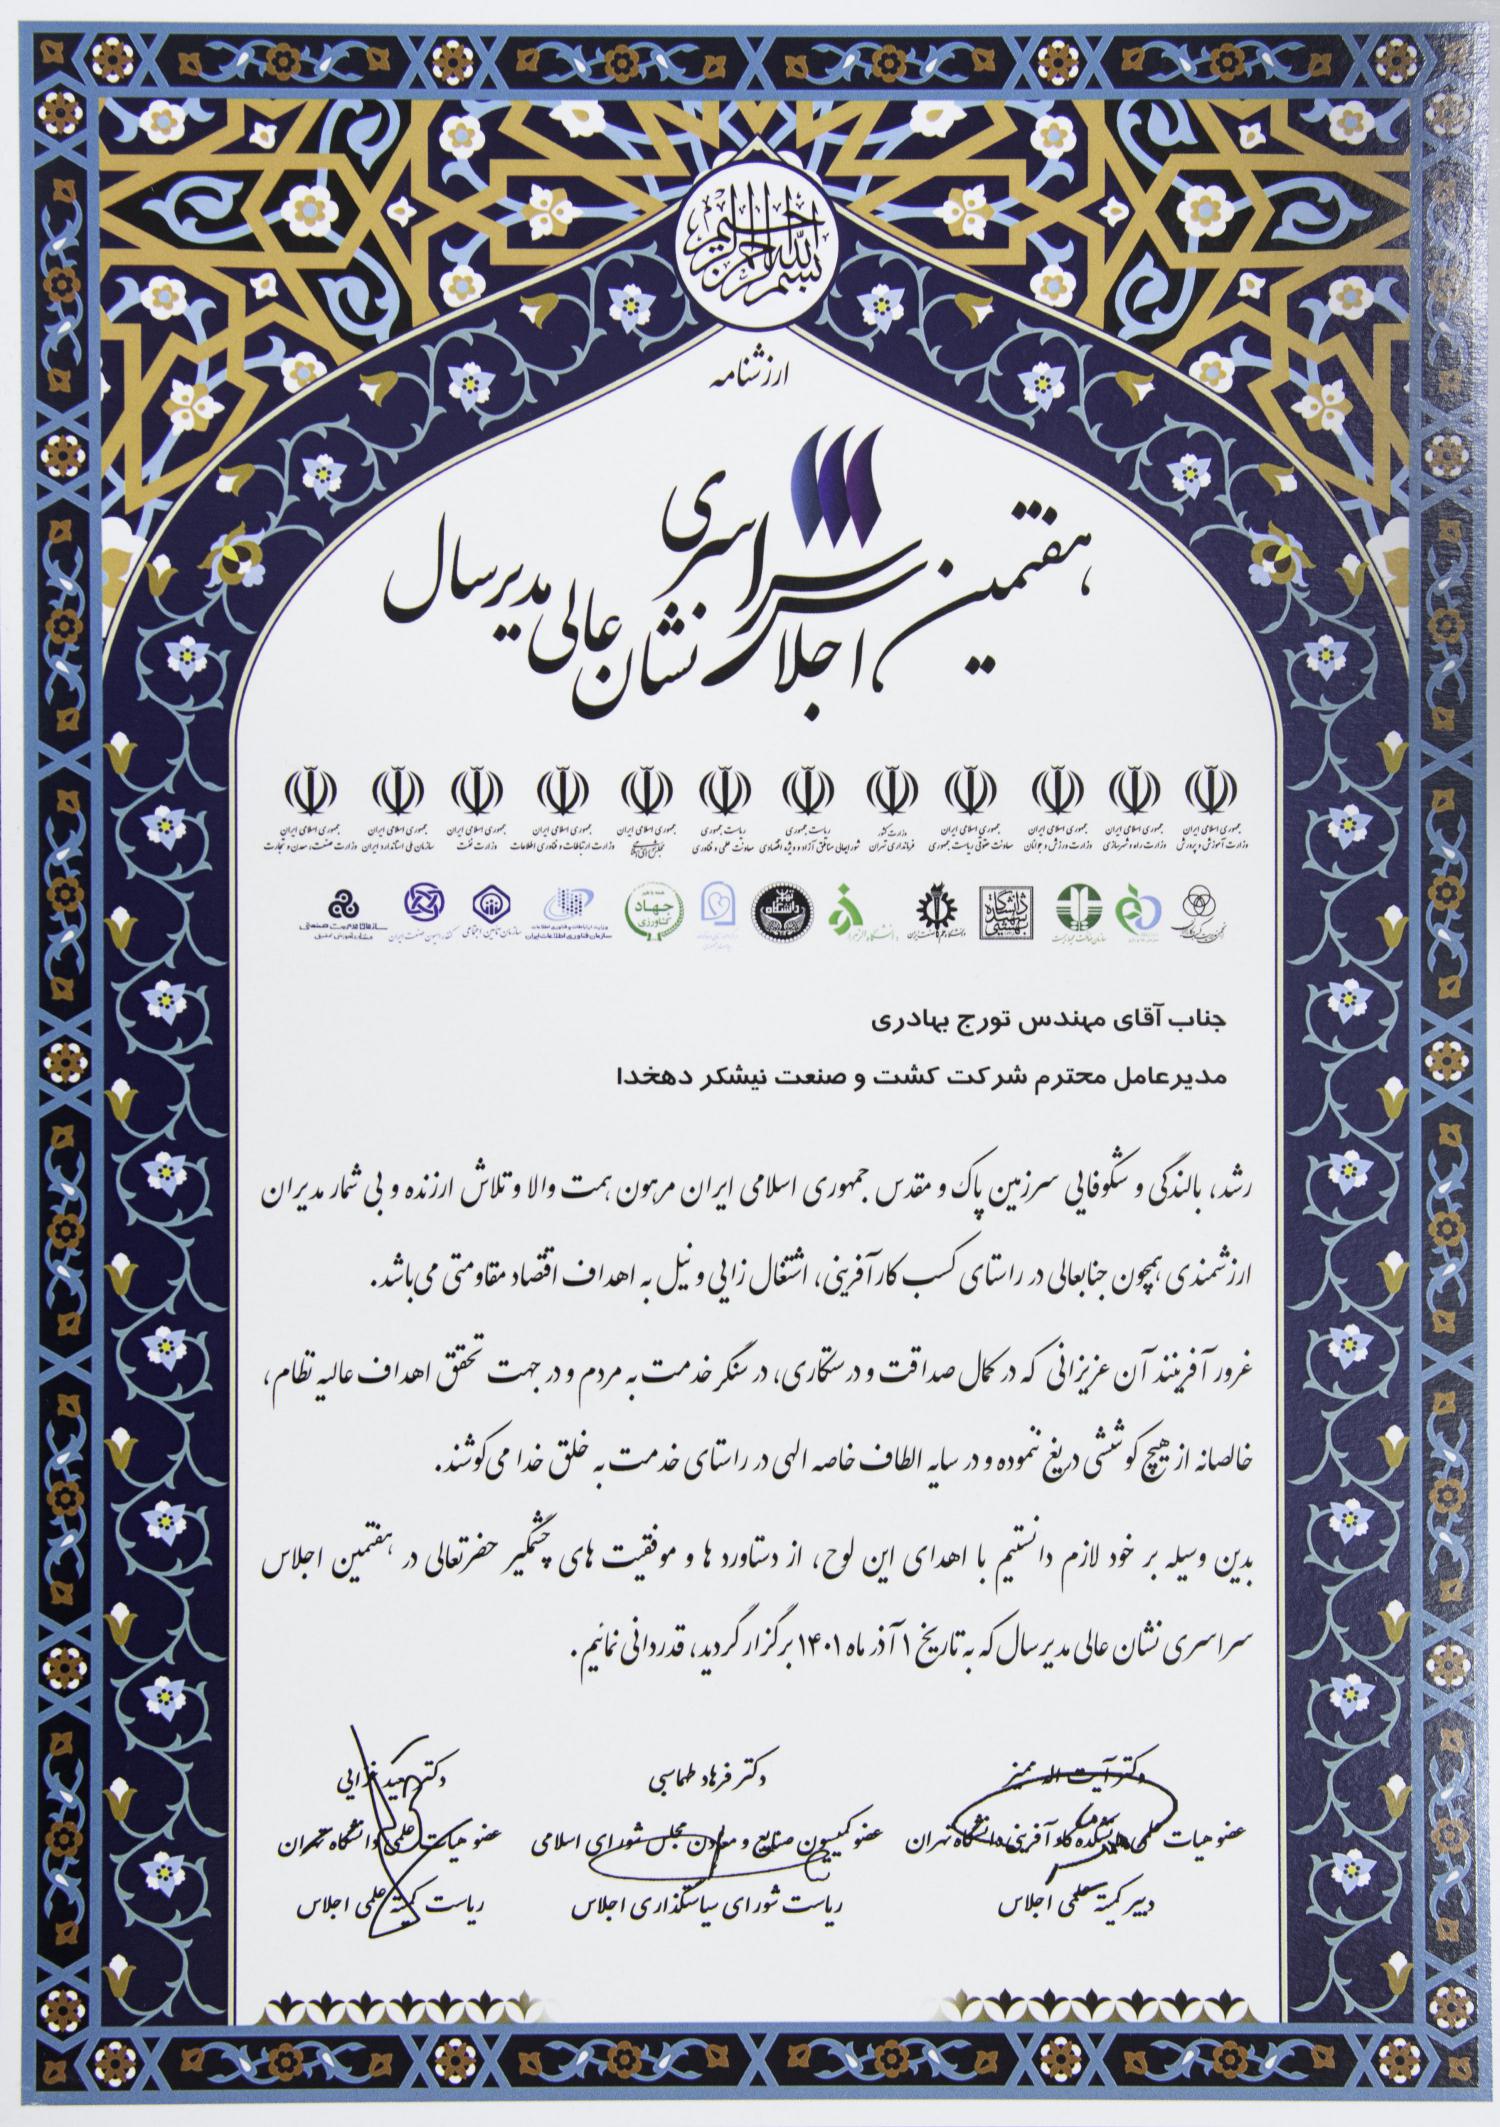 بسم الله الرحمن الرحیم
ارزشنامه
هفتمین اجلاس سراسری نشان عالی مدیر سال
جمهوری اسلامی ایران
وزارت آموزش و پرورش
جمهوری اسلامی ایران
وزارت راه و شهرسازی
جمهوری اسلامی ایران
وزارت ورزش و جوانان
جمهوری اسلامی ایران
معاونت حقوقی ریاست جمهوری
وزارت کشور
فرمانداری تهران
ریاست جمهوری
شورایعالی مناطق آزاد و ویژه اقتصادی
ریاست جمهوری
معاونت علمی و فناوری
جمهوری اسلامی ایران
مجلس شورای اسلامی
جمهوری اسلامی ایران
وزارت ارتباطات و فناوری اطلاعات
جمهوری اسلامی ایران
وزارت نفت
جمهوری اسلامی ایران
سازمان ملی استاندارد ایران
جمهوری اسلامی ایران
وزارت صنعت، معدن و تجارت
سازمان حفاظت محیط زیست
دانشگاه شهید بهشتی
دانشگاه علم و صنعت ایران
دانشگاه الزهرا
دانشگاه تهران
جهاد کشاورزی
سازمان فناوری اطلاعات ایران
سازمان تأمین اجتماعی
سازمان مدیریت صنعتی
جناب آقای مهندس تورج بهادری
مدیرعامل محترم شرکت کشت و صنعت نیشکر دهخدا
رشد، بالندگی و شکوفایی سرزمین پاک و مقدس جمهوری اسلامی ایران مرهون همت والا و تلاش ارزنده و بی شمار مدیران
ارزشمندی همچون جنابعالی در راستای کسب کارآفرینی، اشتغال زایی و نیل به اهداف اقتصاد مقاومتی می‌باشد.
غرور آفرینند آن عزیزانی که در کمال صداقت و درستکاری، در سنگر خدمت به مردم و در جهت تحقق اهداف عالیه نظام،
خالصانه از هیچ کوششی دریغ ننموده و در سایه الطاف خاصه الهی در راستای خدمت به خلق خدا می‌کوشند.
بدین وسیله بر خود لازم دانستیم با اهدای این لوح، از دستاورد ها و موفقیت های چشمگیر حضرتعالی در هفتمین اجلاس
سراسری نشان عالی مدیر سال که به تاریخ ۱ آذر ماه ۱۴۰۱ برگزار گردید، قدردانی نمائیم.
دکتر آیت اله ممیز
عضو هیات علمی دانشکده کارآفرینی دانشگاه تهران
دبیر کمیته علمی اجلاس
دکتر فرهاد طهماسبی
عضو کمیسیون صنایع و معادن مجلس شورای اسلامی
ریاست شورای سیاستگذاری اجلاس
دکتر
عضو هیات علمی دانشگاه تهران
ریاست کمیته علمی اجلاس